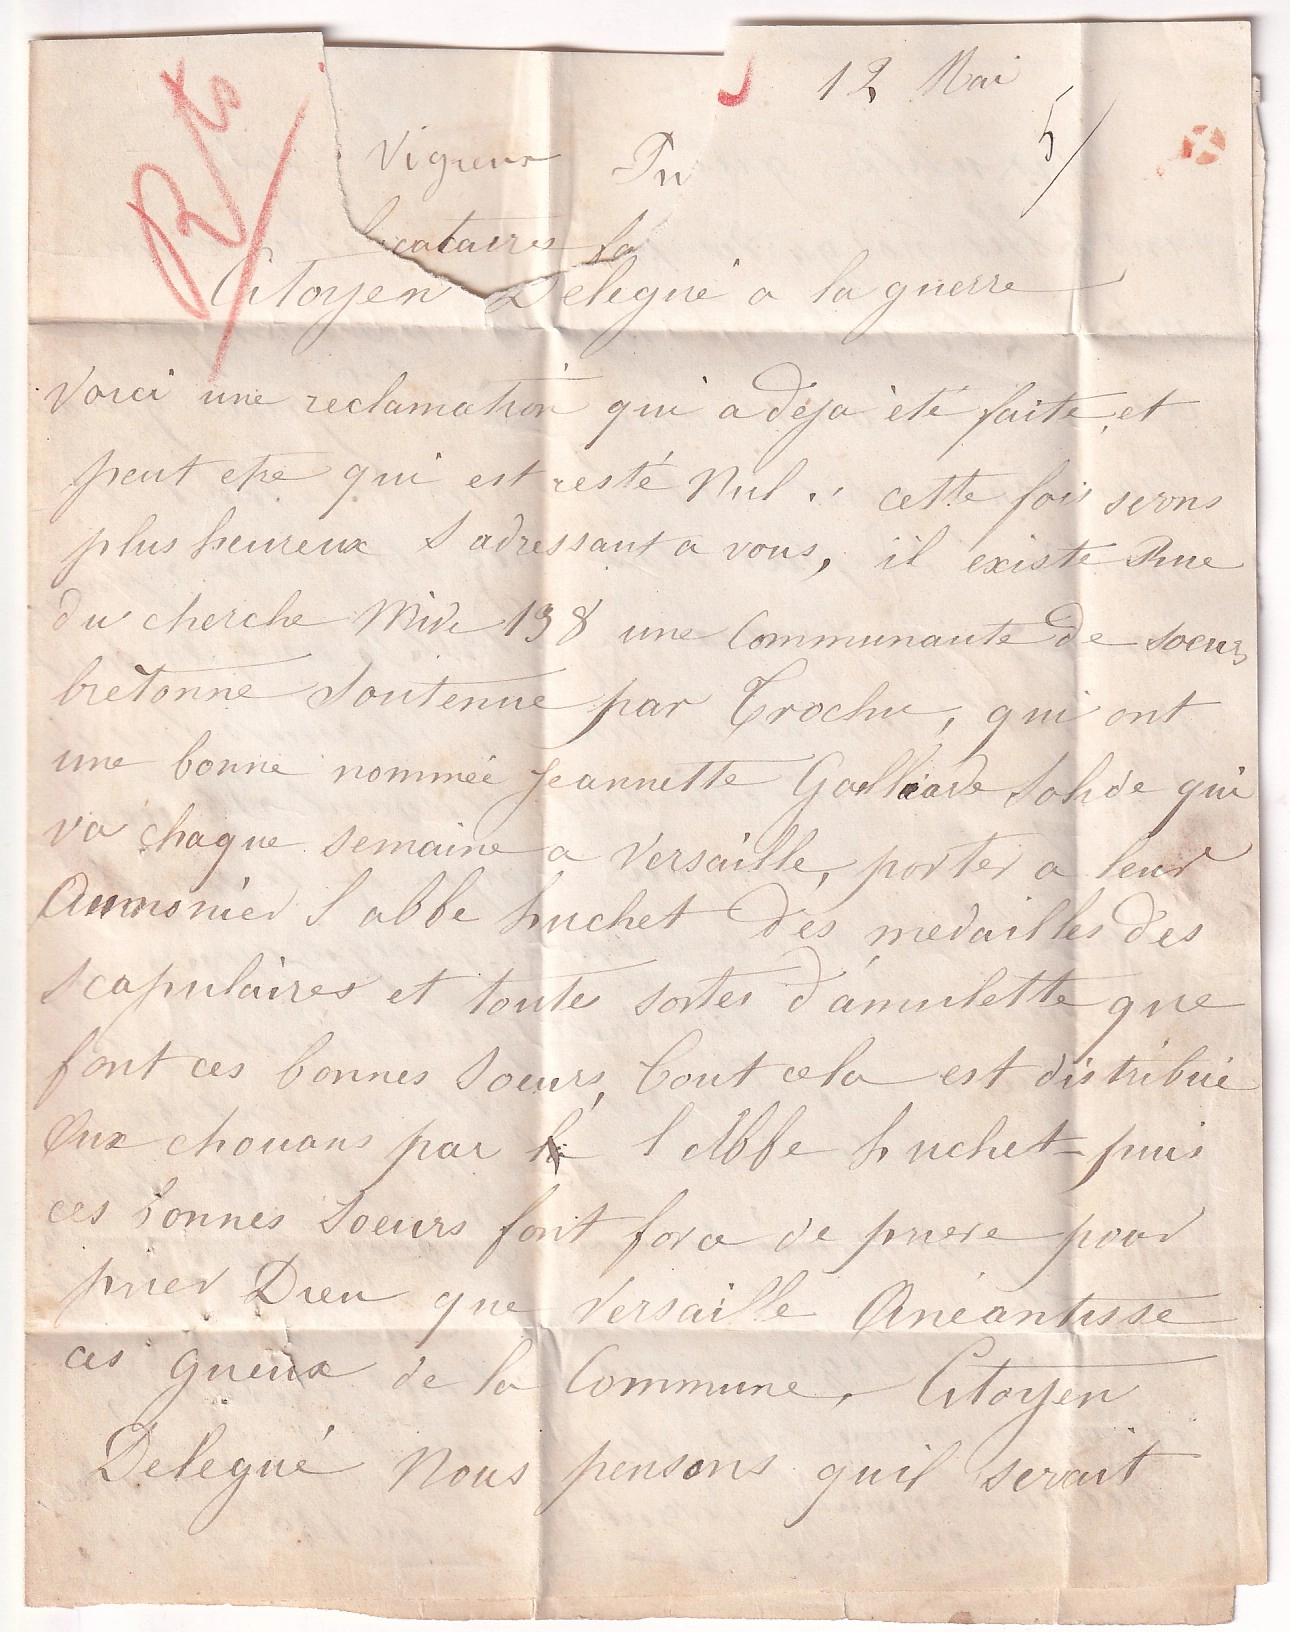 12 Mai
5/
Rts
Vigneux
locataires
Citoyen Delegué a la guerre
Voici une reclamation qui a deja été faite, et
peut etre qui est resté Nul. cette fois serons
plus heureux S adressant a vous, il existe Rue
du cherche Midi 138 une Communauté de soeurs
bretonne Soutenue par Trochu, qui ont
une bonne nommée Jeannette Solide qui
va chaque semaine a Versaille, porter a leur
Aumonier l abbe huchet des medailles des
scapulaires et toute sortes d'amulette que
font ces bonnes Soeurs, tout cela est distribué
Aux chouans par l Abbe huchet puis
ces bonnes Soeurs font force de priere pour
prier Dieu que Versaille Anéantisse
ces gueux de la Commune, Citoyen
Delegué Nous pensons quil serait